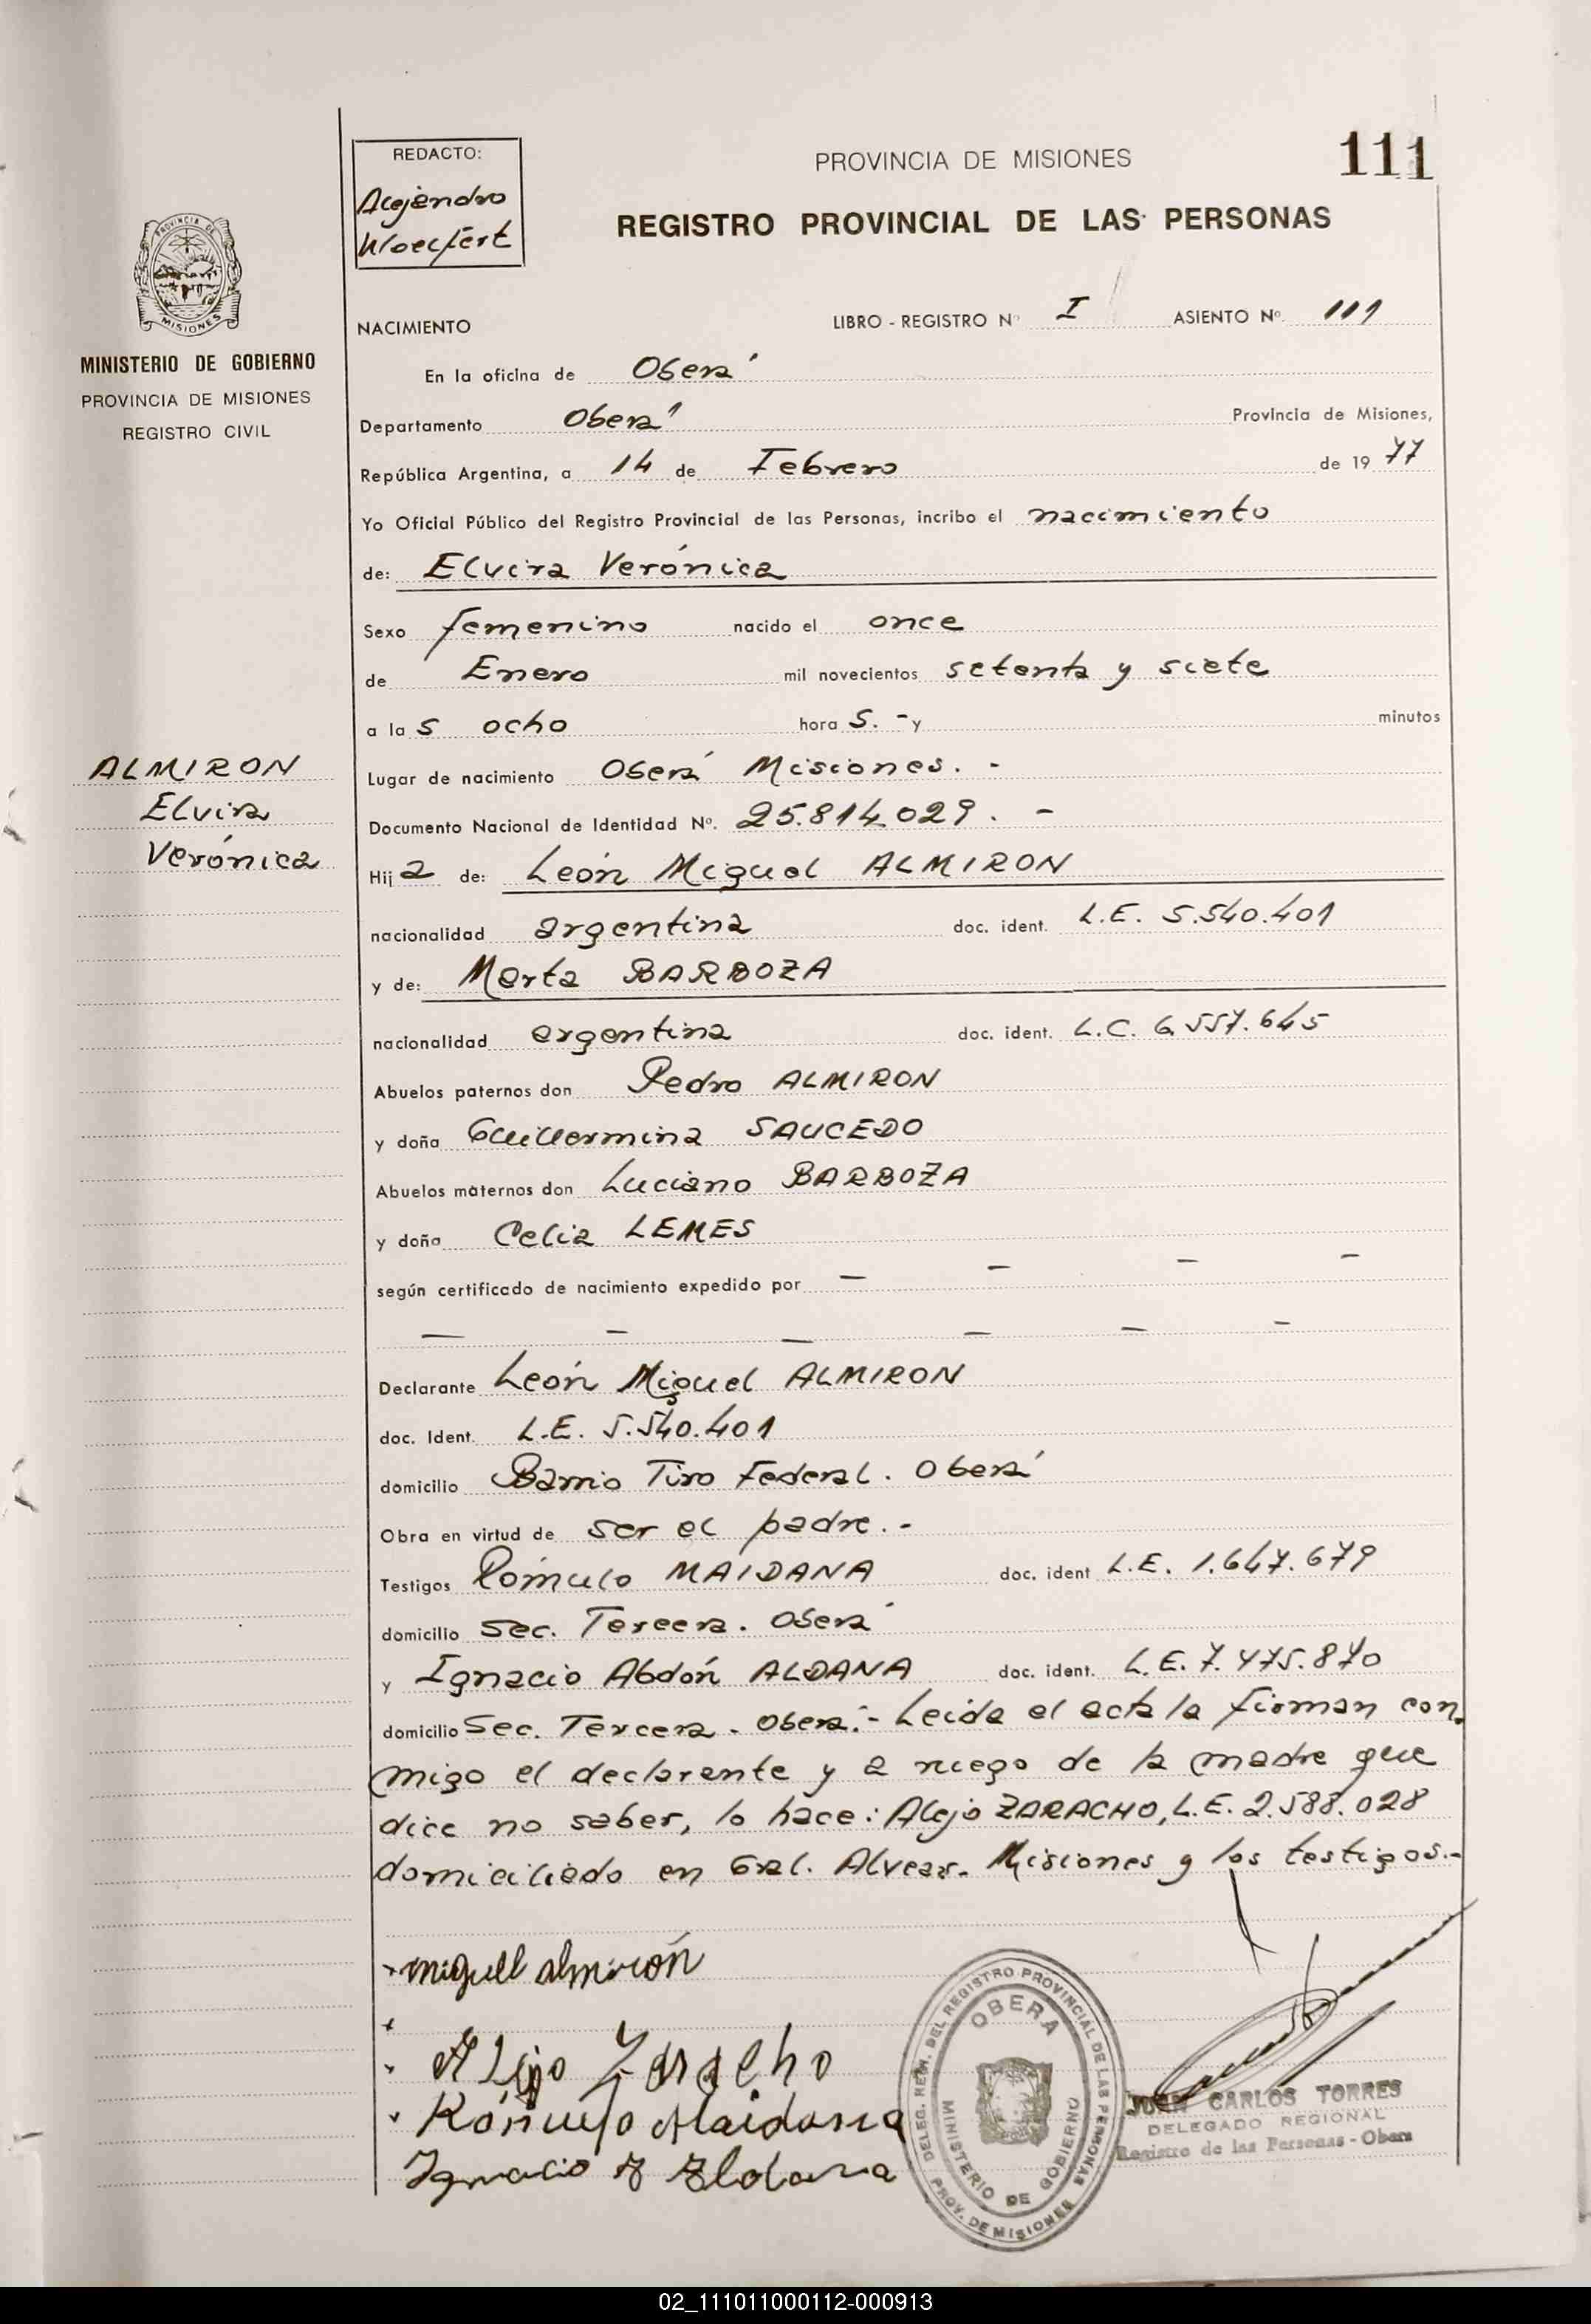 REDACTO:
Alejandro
Woecfert
PROVINCIA DE MISIONES
111
REGISTRO PROVINCIAL DE LAS PERSONAS
PROVINCIA DE
MISIONES
MINISTERIO DE GOBIERNO
PROVINCIA DE MISIONES
REGISTRO CIVIL
NACIMIENTO
LIBRO - REGISTRO Nº I ASIENTO Nº. 111
En la oficina de Oberá
Departamento Oberá Provincia de Misiones,
República Argentina, a 14 de Febrero de 1977
Yo Oficial Público del Registro Provincial de las Personas, incribo el nacimiento
de: Elvira Verónica
Sexo femenino nacido el once
de Enero mil novecientos setenta y siete
a las ocho horas. - y minutos
ALMIRON
Elvira
Verónica
Lugar de nacimiento Oberá Misiones. -
Documento Nacional de Identidad Nº. 25.814.029. -
Hija de: León Miguel ALMIRON
nacionalidad argentina doc. ident. L.E. 5.540.401
y de: Marta BARBOZA
nacionalidad argentina doc. ident. L.C. 6.557.645
Abuelos paternos don Pedro ALMIRON
y doña Guillermina SAUCEDO
Abuelos maternos don Luciano BARBOZA
y doña Celia LEMES
según certificado de nacimiento expedido por — — — —
— — — — — —
Declarante León Miguel ALMIRON
doc. Ident. L.E. 5.540.401
domicilio Barrio Tiro Federal. Oberá
Obra en virtud de ser el padre. -
Testigos Rómulo MAIDANA doc. ident L.E. 1.647.679
domicilio Sec. Tercera. Oberá
y Ignacio Abdón ALDANA doc. ident. L.E. 7.475.870
domicilio Sec. Tercera. Oberá.- Leida el acta la firman con
migo el declarante y a ruego de la madre que
dice no saber, lo hace: Alejo ZARACHO, L.E. 2.588.028
domiciliado en Gral. Alvear. Misiones y los testigos.-
miguell almirón
Alejo Zaracho
Rómulo Maidana
Ignacio A Aldana
DELEG. REGN. DEL REGISTRO PROVINCIAL DE LAS PERSONAS
OBERA
MINISTERIO DE GOBIERNO
PROV. DE MISIONES
JUAN CARLOS TORRES
DELEGADO REGIONAL
Registro de las Personas - Obera
02_111011000112-000913